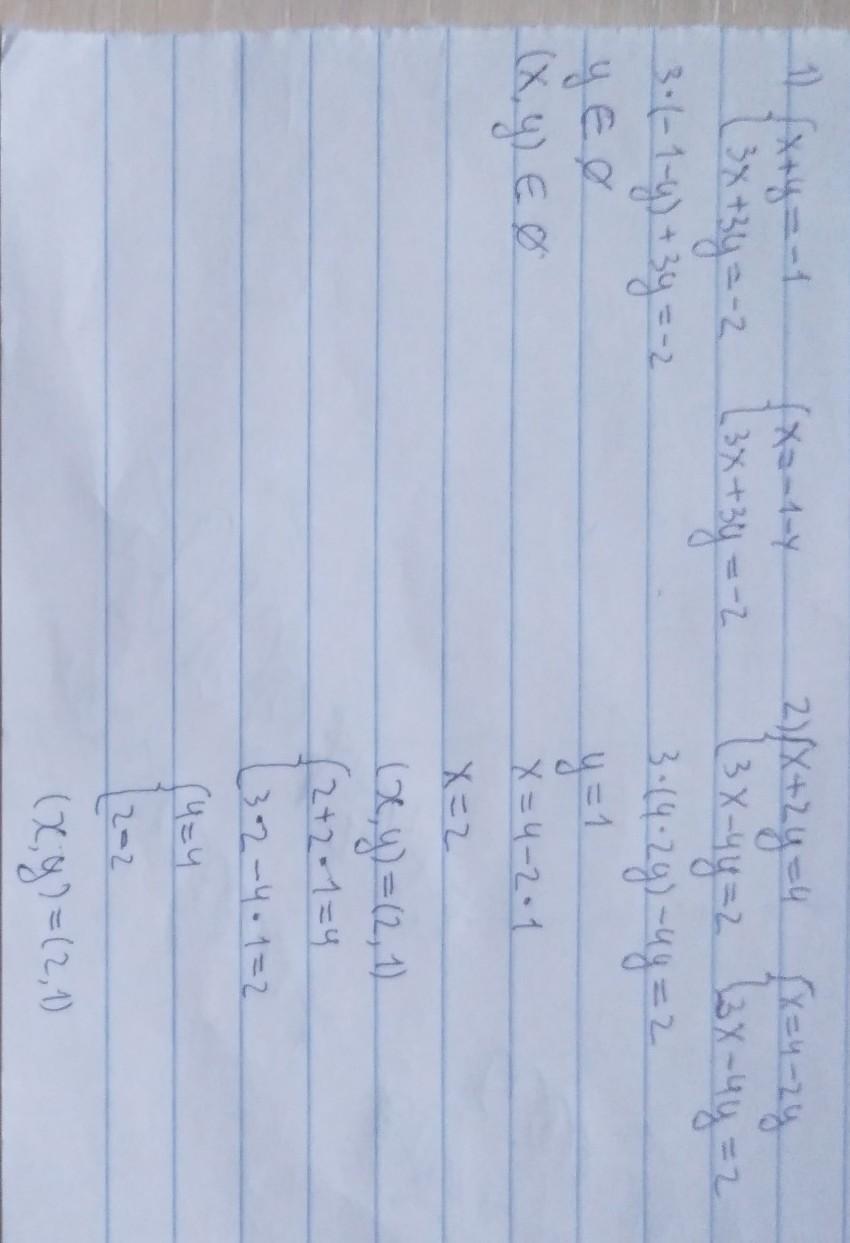 1) { x+y=-1
{ 3x+3y=-2
{ x=-1-y
{ 3x+3y=-2
3·(-1-y)+3y=-2
y∈∅
(x,y)∈∅
2) { x+2y=4
{ 3x-4y=2
{ x=4-2y
{ 3x-4y=2
3·(4·2y)-4y=2
y=1
x=4-2·1
x=2
(x,y)=(2,1)
{ 2+2·1=4
{ 3·2-4·1=2
{ 4=4
{ 2=2
(x,y)=(2,1)